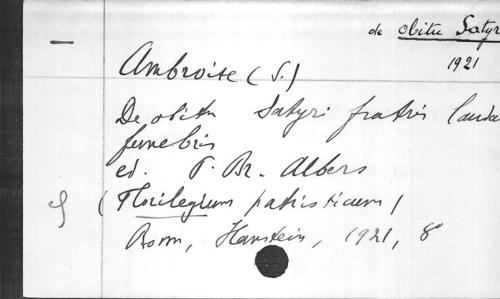 de obitu Satyr
1921
Ambroise (S.)
De obitu Satyri fratris lauda
funebris
ed. P. Br. Albers
(Florilegium patristicum)
Bonn, Hanstein, 1921, 8°